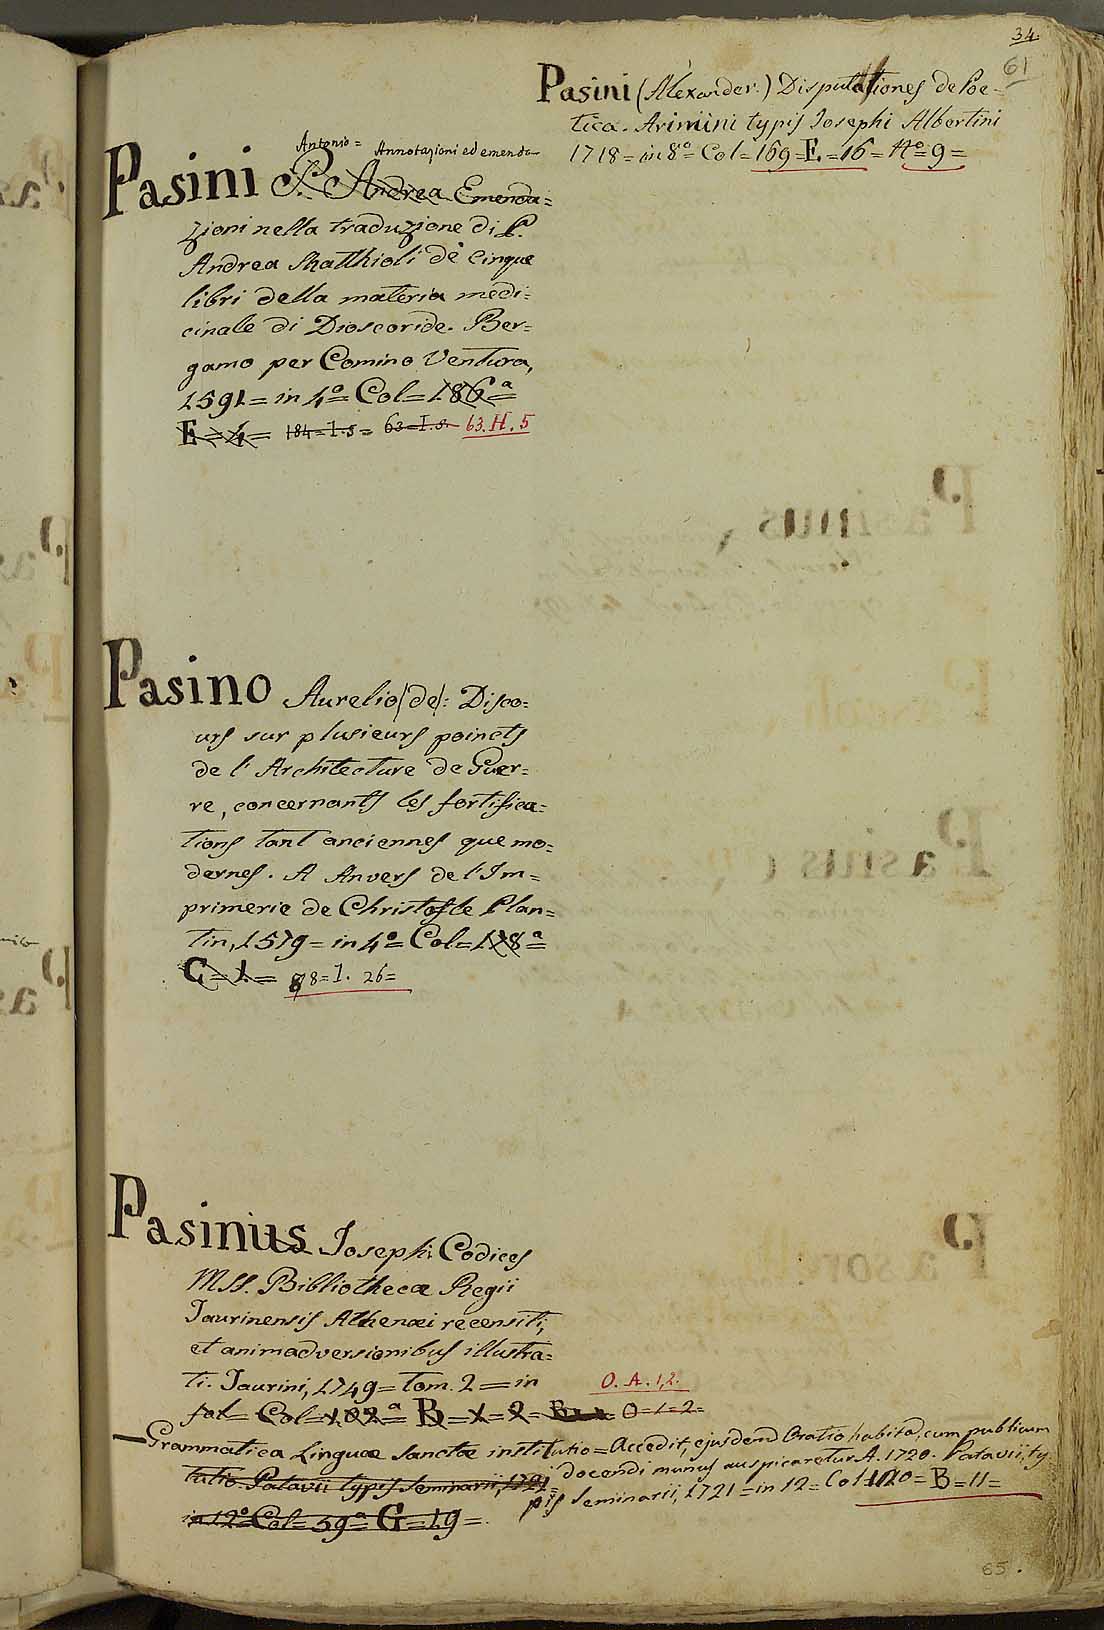 34.
61
Pasini (Alexander.) Disputationes de Poe-
tica. Arimini typis Josephi Albertini
1718 = in 8º = Col = 169 = E = 16 = Nº = 9 =
Antonio = Annotazioni ed emenda-
Pasini P. Andrea Emenda=
zioni nella traduzione di P.
Andrea Matthioli de' cinque
libri della materia medi=
cinale di Dioscoride. Ber=
gamo per Comino Ventura,
1591 = in 4º = Col = 186ª =
E = 4 = 184 = I. s = 63 = I. s. 63. H. 5
Pasino Aurelio (de): Disco=
urs sur plusieurs poincts
de l' Architecture de Guer=
re, concernants les fortifica=
tions tant anciennes que mo=
dernes. A Anvers de l'Im=
primerie de Christofle Plan=
tin, 1579 = in 4º = Col = 178ª =
C = 1 = 8 = I. 26 =
Pasinius Joseph: Codices
MSS. Bibliothecæ Regii
Taurinensis Athenæi recensiti,
et animadversionibus illustra=
ti. Taurini, 1749 = Tom. 2 = in
O. A. 1,2.
fol = Col = 102ª = B = 1 = 2 = O = 1 = 2 =
— Grammatica Linguæ Sanctæ institutio = Accedit, ejusdem Oratio habita, cum publicum
docendi munus auspicaretur A. 1720. Patavii, ty
tutio. Patavii typis Seminarii, 1721 =
pis Seminarii, 1721 = in 12 = Col 120 = B = 11 =
in 12º Col = 59ª = G = 19 =.
65.